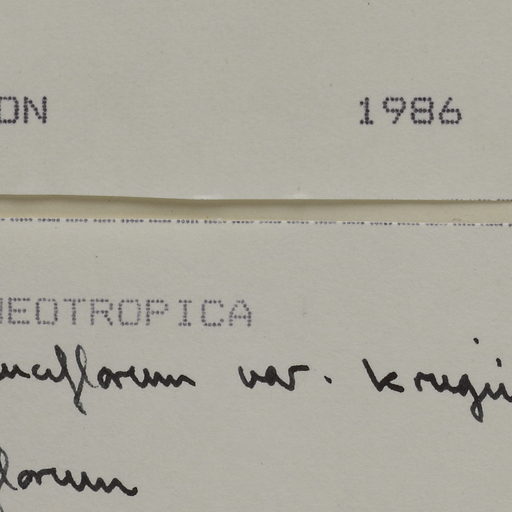 ON 1986
NEOTROPICA
uciflorum var. krugii
florum